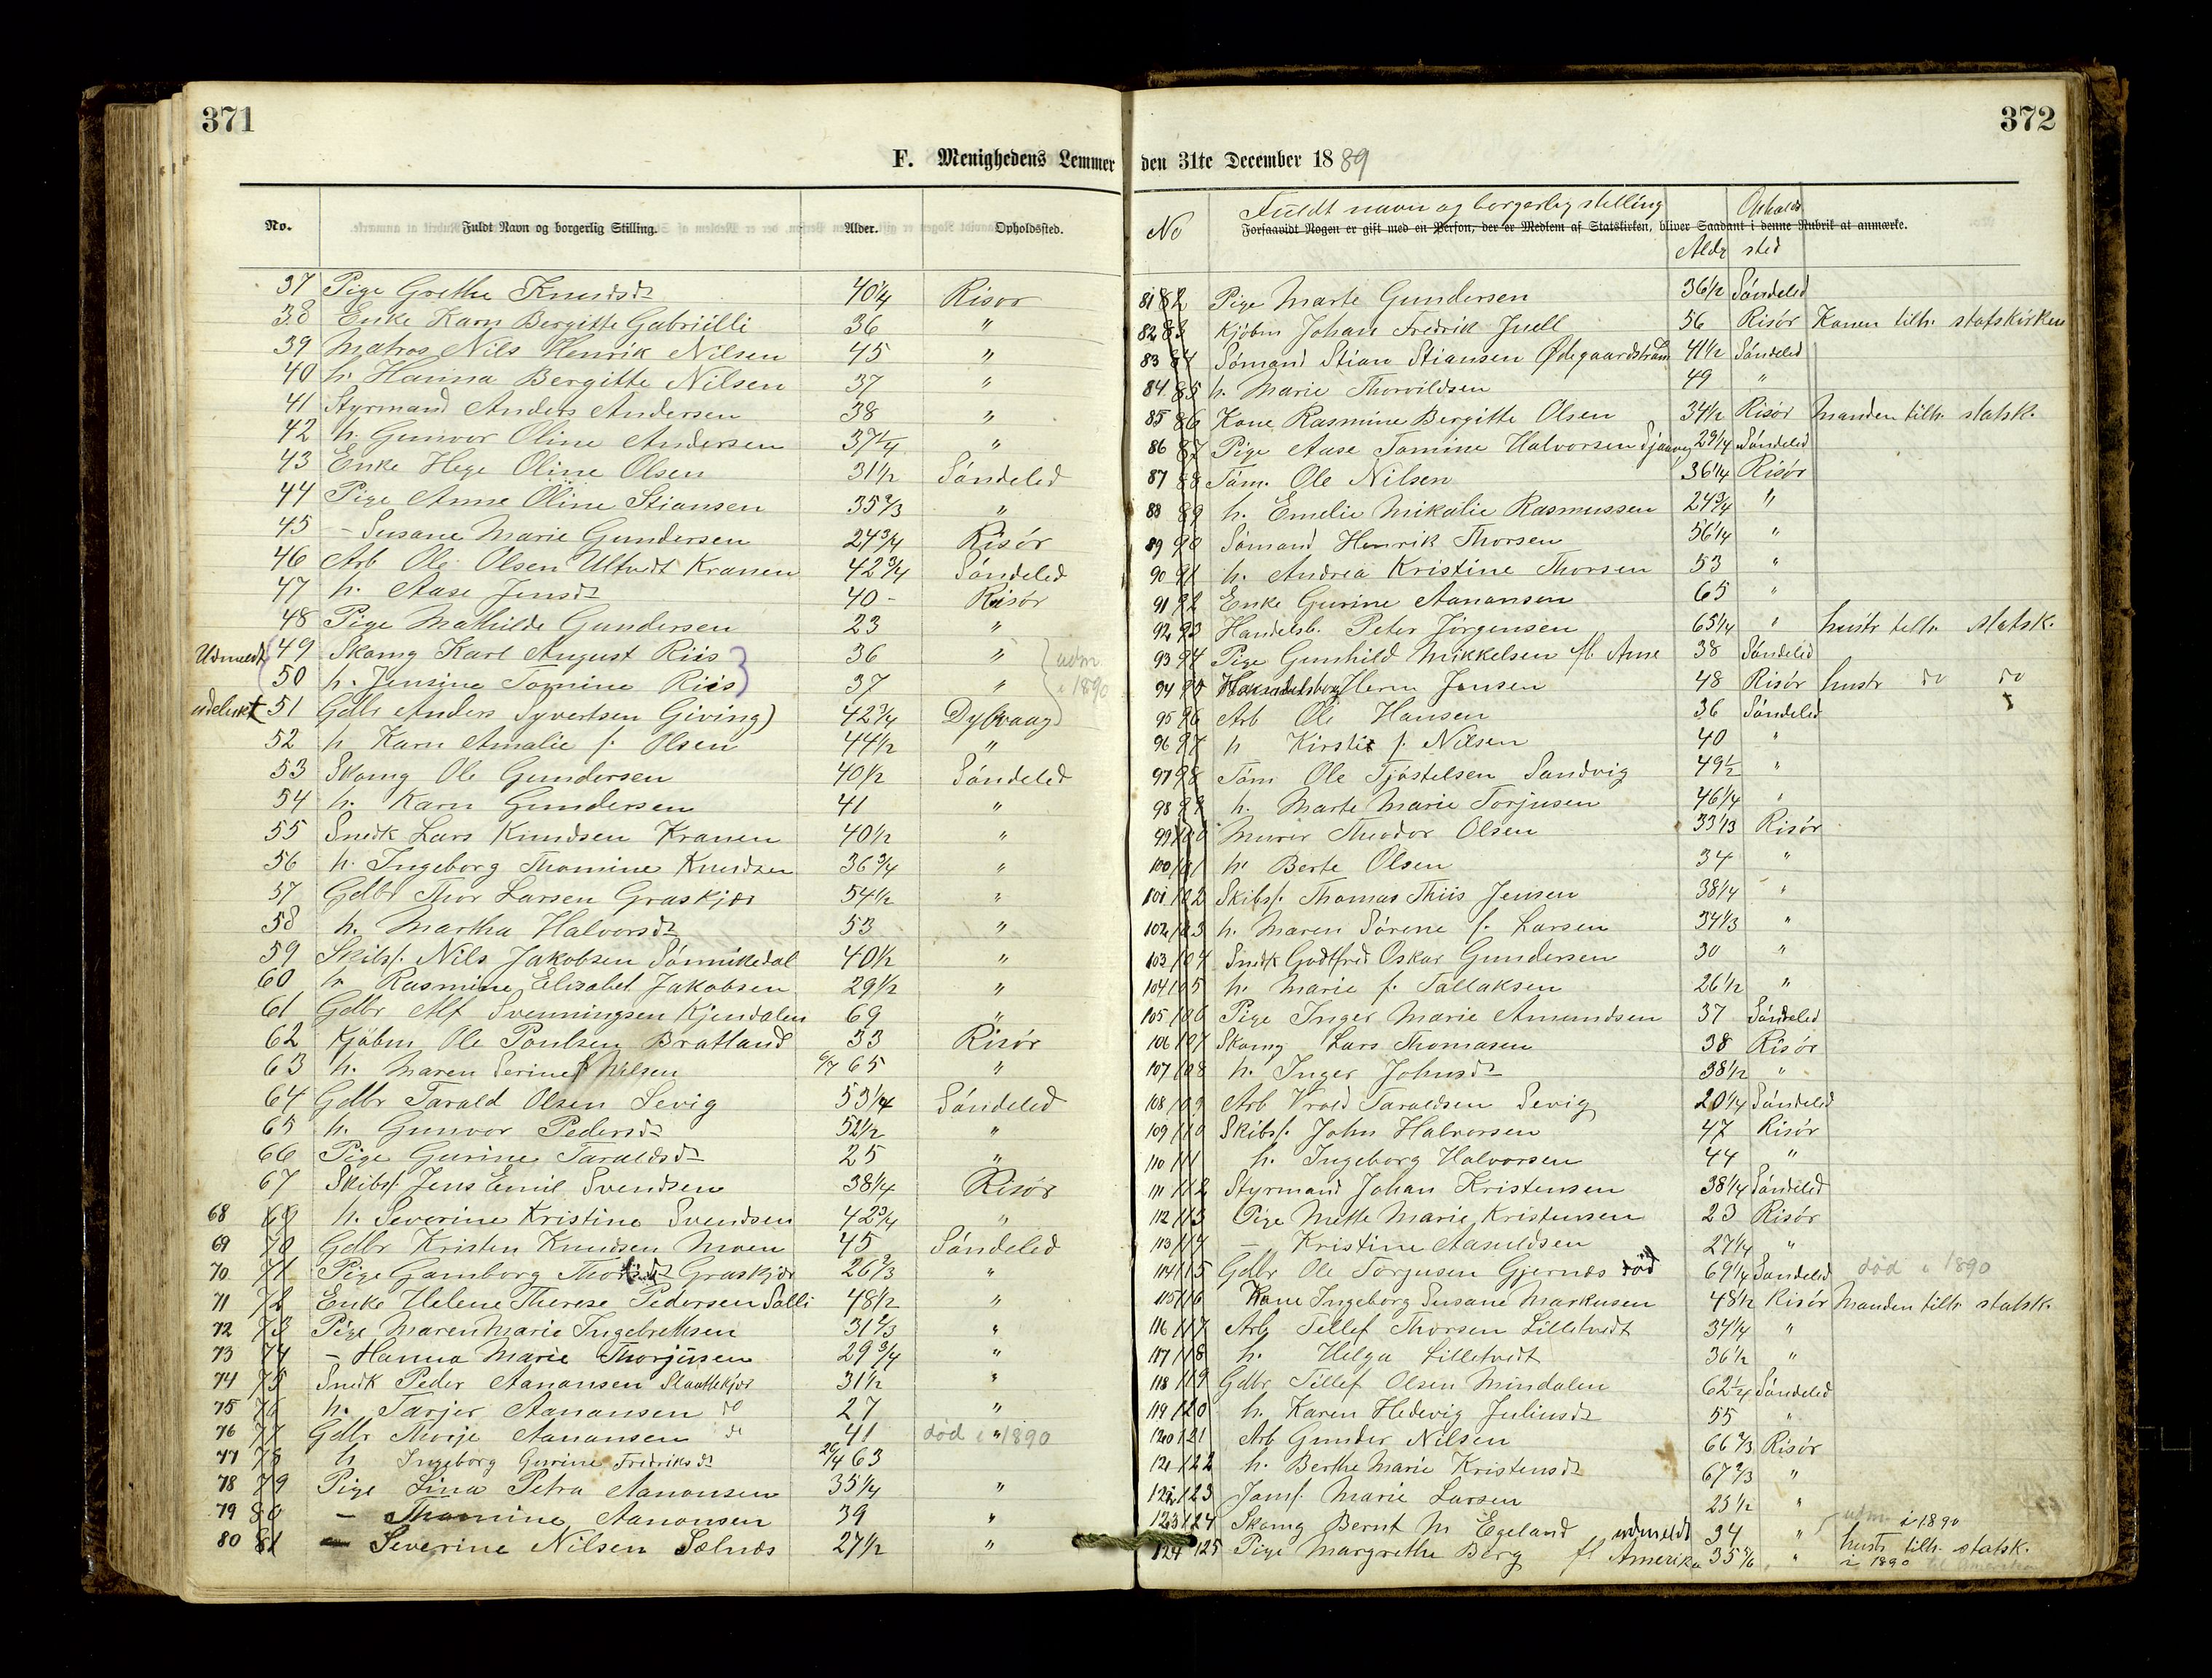 371
F. Menighedens Lemmer
No. Fuldt Navn og borgerlig Stilling. Alder. Opholdssted.
37 Pige Grethe Knudsdt 40 1/4 Risør
38 Enke Karn Bergitte Gabriilli 36 "
39 Matros Nils Henrik Nilsen 45 "
40 h. Hanna Bergitte Nilsen 37 "
41 Styrmand Anders Andersen 38 "
42 h. Gunvor Oline Andersen 37 1/4 "
43 Enke Hege Oline Olsen 31 1/2 Söndeled
44 Pige Anne Oline Stiansen 35 2/3 "
45 – Susane Marie Gundersen 24 3/4 Risör
46 Arb Ole Olsen Ultvedt Kranen 42 3/4 Söndeled
47 h. Aase Jensdt 40 - Risör
48 Pige Mathilde Gundersen 23 "
Udmeldt 49 Skomg Karl August Riis 36 " udm
50 h. Jensine Tomine Riis 37 " i 1890
udelukt 51 Gdbr Anders Syvertsen Giving) 42 3/4 Dybvaag
52 h Karn Amalie f. Olsen 44 1/2 "
53 Skomg Ole Gundersen 40 1/2 Söndeled
54 h. Karn Gundersen 41 "
55 Snedk Lars Knudsen Kranen 40 1/2 "
56 h. Ingeborg Thomine Knudsen 36 3/4 "
57 Gdbr Thor Larsen Graskjær 54 1/2 "
58 h. Martha Halvorsdt 53 "
59 Skibsf. Nils Jakobsen Sönnikedal 40 1/2 "
60 h. Rasmine Elisabet Jakobsen 29 1/2 "
61 Gdbr Alf Svenningsen Kjendalen 69 "
62 Kjöbm Ole Poulsen Bratland 33 Risör
63 h. Maren Serine f Nilsen 6/7 65 "
64 Gdbr Tarald Olsen Sevig 53 1/4 Söndeled
65 h. Gunvor Pedersdt 52 1/2 "
66 Pige Gurine Taraldsdt 25 "
67 Skibsf. Jens Emil Svendsen 38 1/4 Risör
68 69 h. Severine Kristine Svendsen 42 3/4 "
69 70 Gdbr Kristen Knudsen Moen 45 Söndeled
70 71 Pige Gamborg Graskjær 26 2/3 "
71 72 Enke Helene Therese Pedersen Salli 48 1/2 "
72 73 Pige Maren Marie Ingebrethsen 31 2/3 "
73 74 – Hanna Marie Thorjusen 29 3/4 "
74 75 Snedk Peder Aanonsen 31 1/2 "
75 76 h. Tarjer Aanonsen do 27 "
76 77 Gdbr Aanonsen do 41 død i 1890
77 78 h Ingeborg Gurine Fredriksdt 26/4 63
78 79 Pige Lina Petra Aanonsen 35 1/4 "
79 80 – Thomine Aanonsen 39 "
80 81 – Severine Nilsen Sælnæs 27 1/2 "
372
den 31te December 1889
No Fuldt navn og borgerlig stilling Alder Opholdssted
Forsaavidt Nogen er gift med en Person, der er Medlem af Statskirken, bliver Saadant i denne Rubrik at anmærke.
81 82 Pige Marte Gundersen 36 1/2 Söndeled
82 83 Kjöbm Johan Fredrik Juell 56 Risör Konen tilh. statskirken
83 84 Sömand Stian Stiansen Ødegaardstrand 41 1/2 Söndeled
84 85 h. Marie Thorvildsen 49 "
85 86 Kone Rasmine Bergitte Olsen 34 1/2 Risör Manden tilh. statsk.
86 87 Pige Aase Tomine Halvorsen 29 1/4 Söndeled
87 88 Töm. Ole Nilsen 36 1/4 Risör
88 89 h. Emelie Mikalie Rasmussen 24 3/4 "
89 90 Sömand Henrik Thorsen 56 1/4 "
90 91 h. Andrea Kristine Thorsen 53 "
91 92 Enke Gurine Aanonsen 65 "
92 93 Handelsb. Peter Jörgensen 65 1/4 " hustr tilh. statsk.
93 94 Pige Gunhild Mikkelsen fl. Ame 38 Söndeled
94 95 Herm Jensen 48 Risör hustr do do
95 96 Arb Ole Hansen 36 Söndeled
96 97 h Kirstie f. Nilsen 40 "
97 98 Töm Ole Tjöstelsen Sandvig 49 1/2 "
98 99 h. Marte Marie Torjusen 46 1/4 "
99 100 Murer Theodor Olsen 33 1/3 Risör
100 101 h. Berte Olsen 34 "
101 102 Skibsf. Thomas Thiis Jensen 38 1/4 "
102 103 h. Maren Sörene f. Larsen 34 1/3 "
103 104 Snedk Godtfred Oskar Gundersen 30 "
104 105 h. Marie f. Tallaksen 26 1/2 "
105 106 Pige Inger Marie Amundsen 37 Söndeled
106 107 Skomg Lars Thomasen 38 Risör
107 108 h. Inger Johnsdt 38 1/2 "
108 109 Arb Vrold Taraldsen Sevig 20 1/4 Söndeled
109 110 Skibsf. John Halvorsen 47 Risör
110 111 h. Ingeborg Halvorsen 44 "
111 112 Styrmand Johan Kristensen 38 1/4 Söndeled
112 113 Pige Mette Marie Kristensen 23 Risör
113 114 – Kristine Aasuldsen 27 1/4 "
114 115 Gdbr Ole Torjusen Gjernæs död 69 1/4 Söndeled död i 1890
115 116 Kone Ingeborg Susane Markusen 48 1/2 Risör Manden tilh. statsk.
116 117 Arb Tellef Thorsen Lilletvedt 34 1/4 "
117 118 h. Helga Lilletvedt 36 1/2 "
118 119 Gdbr Tellef Olsen Mindalen 62 1/4 Söndeled
119 120 h. Karen Hedevig Juliusdt 55 "
120 121 Arb Gunder Nilsen 66 2/3 Risör
121 122 h. Berthe Marie Kristensdt 67 2/3 "
122 123 Jomf. Marie Larsen 23 1/2 "
123 124 Skomg Bernt M Egeland udmeldt 34 " udm. i 1890 hustr tilh. statsk.
124 125 Pige Margrethe Berg fl Amerika 35 5/6 " i 1890